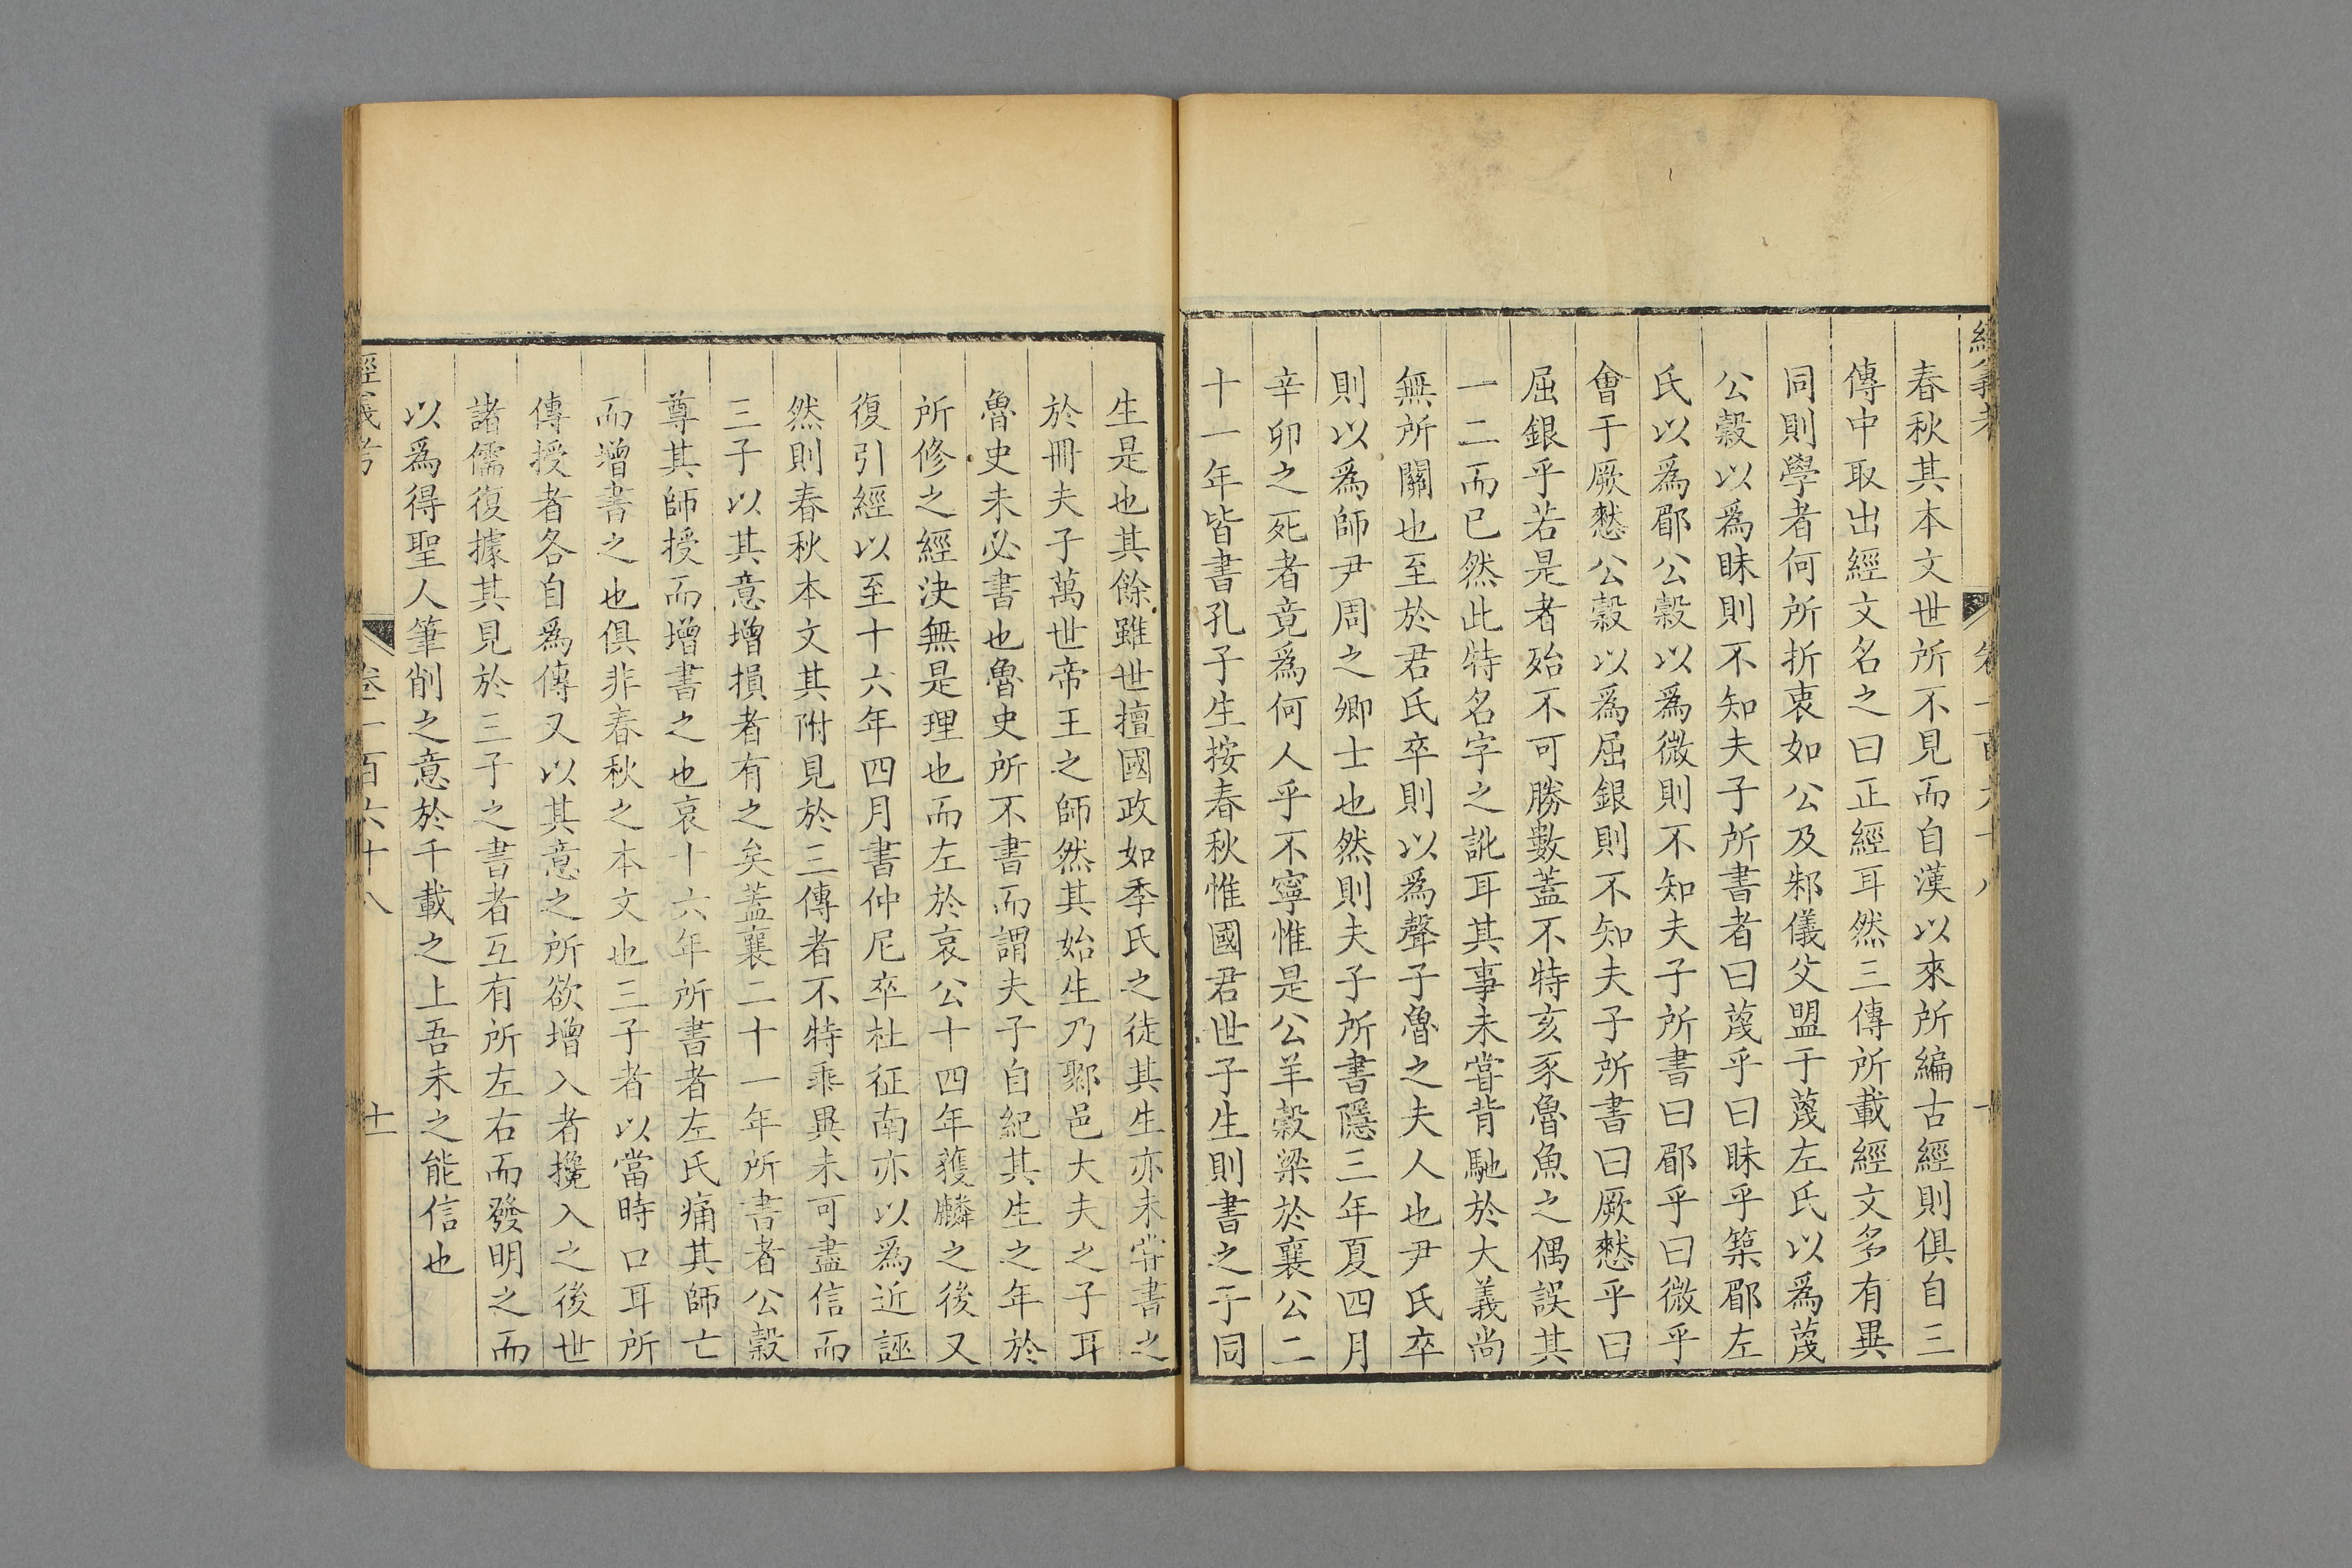 春秋其本文世所不見而自漢以來所編古經則俱自三
傳中取出經文名之曰正經耳然三傳所載經文多有異
同則學者何所折衷如公及邾儀父盟于蔑左氏以爲蔑
公穀以爲眛則不知夫子所書者曰蔑乎曰眛乎築郿左
氏以爲郿公穀以爲微則不知夫子所書曰郿乎曰微乎
會于厥憖公穀以爲屈銀則不知夫子所書曰厥憖乎曰
屈銀乎若是者殆不可勝數蓋不特亥豕魯魚之偶誤其
一二而已然此特名字之訛耳其事未嘗背馳於大義尚
無所關也至於君氏卒則以爲聲子魯之夫人也尹氏卒
則以爲師尹周之卿士也然則夫子所書隱三年夏四月
辛卯之死者竟爲何人乎不寧惟是公羊穀梁於襄公二
十一年皆書孔子生按春秋惟國君世子生則書之子同
生是也其餘雖世擅國政如季氏之徒其生亦未嘗書之
於冊夫子萬世帝王之師然其始生乃鄹邑大夫之子耳
魯史未必書也魯史所不書而謂夫子自紀其生之年於
所修之經決無是理也而左於哀公十四年獲麟之後又
復引經以至十六年四月書仲尼卒杜征南亦以爲近誣
然則春秋本文其附見於三傳者不特乖異未可盡信而
三子以其意增損者有之矣蓋襄二十一年所書者公穀
尊其師授而增書之也哀十六年所書者左氏痛其師亡
而增書之也俱非春秋之本文也三子者以當時口耳所
傳授者各自爲傳又以其意之所欲增入者攙入之後世
諸儒復據其見於三子之書者互有所左右而發明之而
以爲得聖人筆削之意於千載之上吾未之能信也
經義考 卷一百六十八 十一